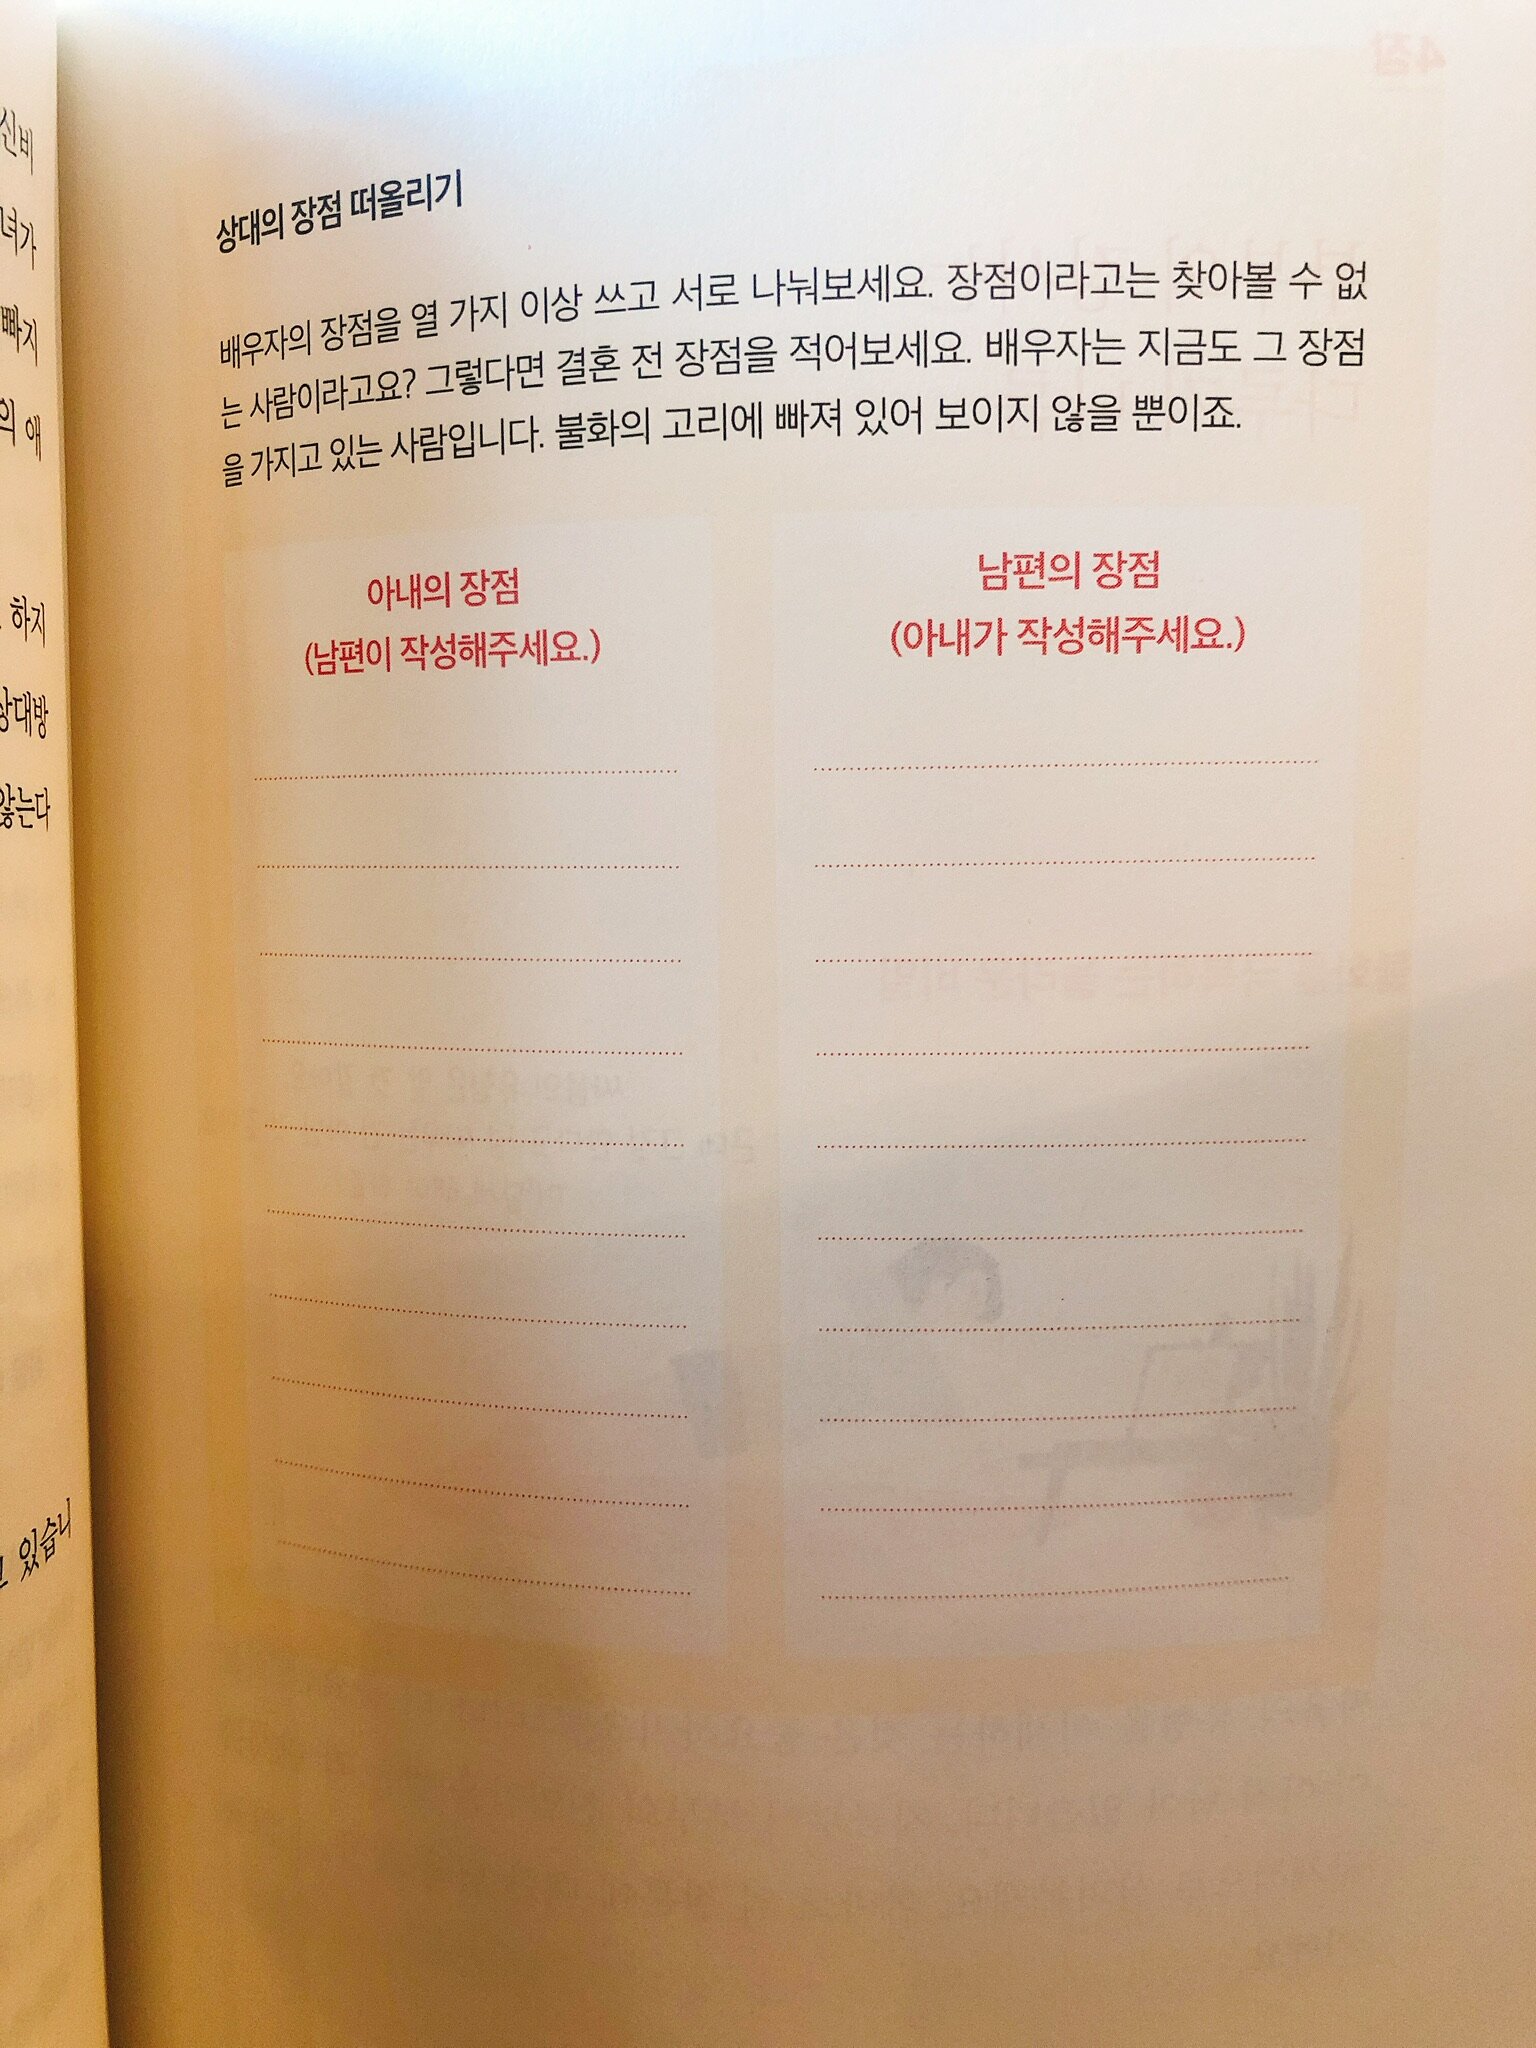 신비
녀가
빠지
의 애
하지
상대방
않는다
있습니
상대의 장점 떠올리기
배우자의 장점을 열 가지 이상 쓰고 서로 나눠보세요. 장점이라고는 찾아볼 수 없
는 사람이라고요? 그렇다면 결혼 전 장점을 적어보세요. 배우자는 지금도 그 장점
을 가지고 있는 사람입니다. 불화의 고리에 빠져 있어 보이지 않을 뿐이죠.
아내의 장점
(남편이 작성해주세요.)
남편의 장점
(아내가 작성해주세요.)